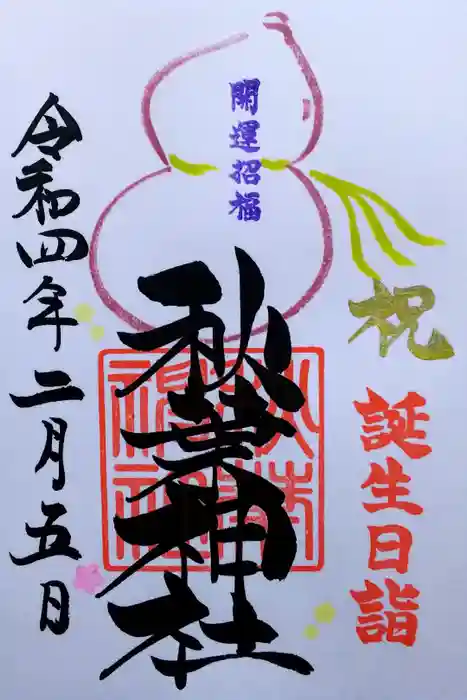 祝
誕生日詣
開運招福
秋葉神社
令和四年二月五日